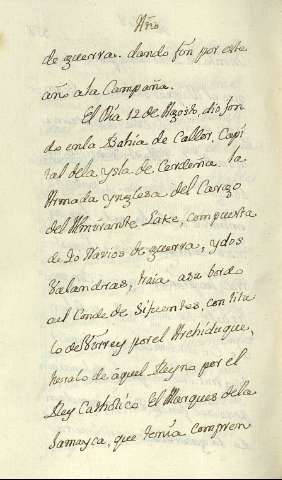 Año
de guerra. dando fin por este
año a la Campaña.
El Dia 12 de Agosto, dio fon
do en la Bahia de Caller, Capi
tal de la ysla de Cerdeña. la
Armada ynglesa del Cargo
del Almirante Lake, compuesta
de 40 Navios de guerra, y dos
Valandras, traia a su bordo
al Conde de Sifuentes, con titu
lo de Virrey por el Archiduque,
heralo de aquel Reyno por el
Rey Catholico El Marques de la
Jamayca, que tenia compren